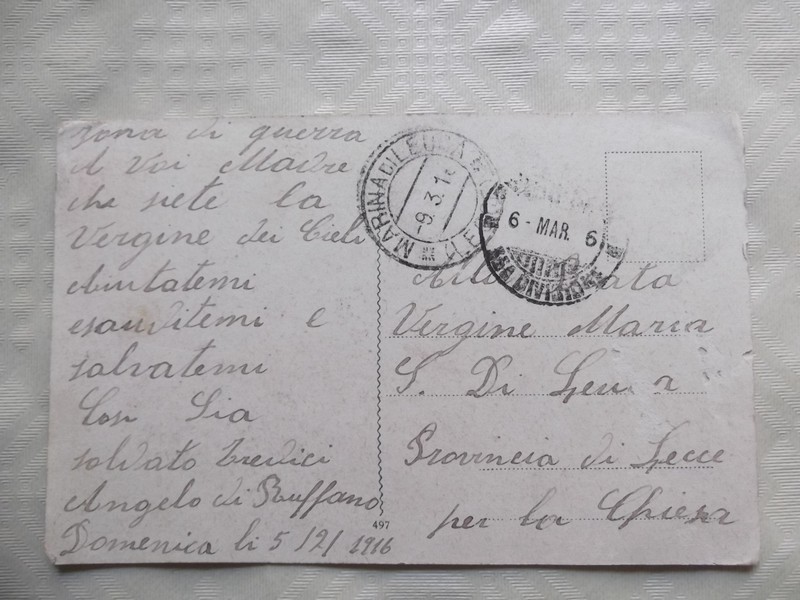 zona di guerra
A voi Madre
che siete la
Vergine dei Cieli
Aiutatemi
esauditemi e
salvatemi
Cosi Sia
soldato Tredici
Angelo di Ruffano
Domenica li 5/2/1916
497
MARINA DI LEUCA
-9.3.16
6 - MAR. 6
Vergine Maria
S. Di Leuca
Provincia di Lecce
per la Chiesa